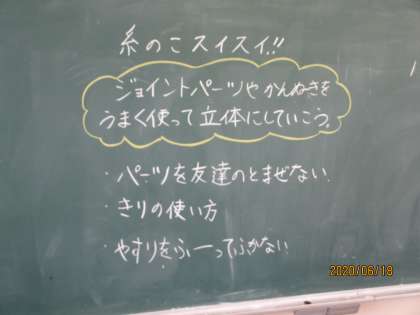 糸のこスイスイ!!
ジョイントパーツやかんぬきを
うまく使って立体にしていこう。
・パーツを友達のとまぜない
・きりの使い方
・やすりをふーってふかない
2020/06/18